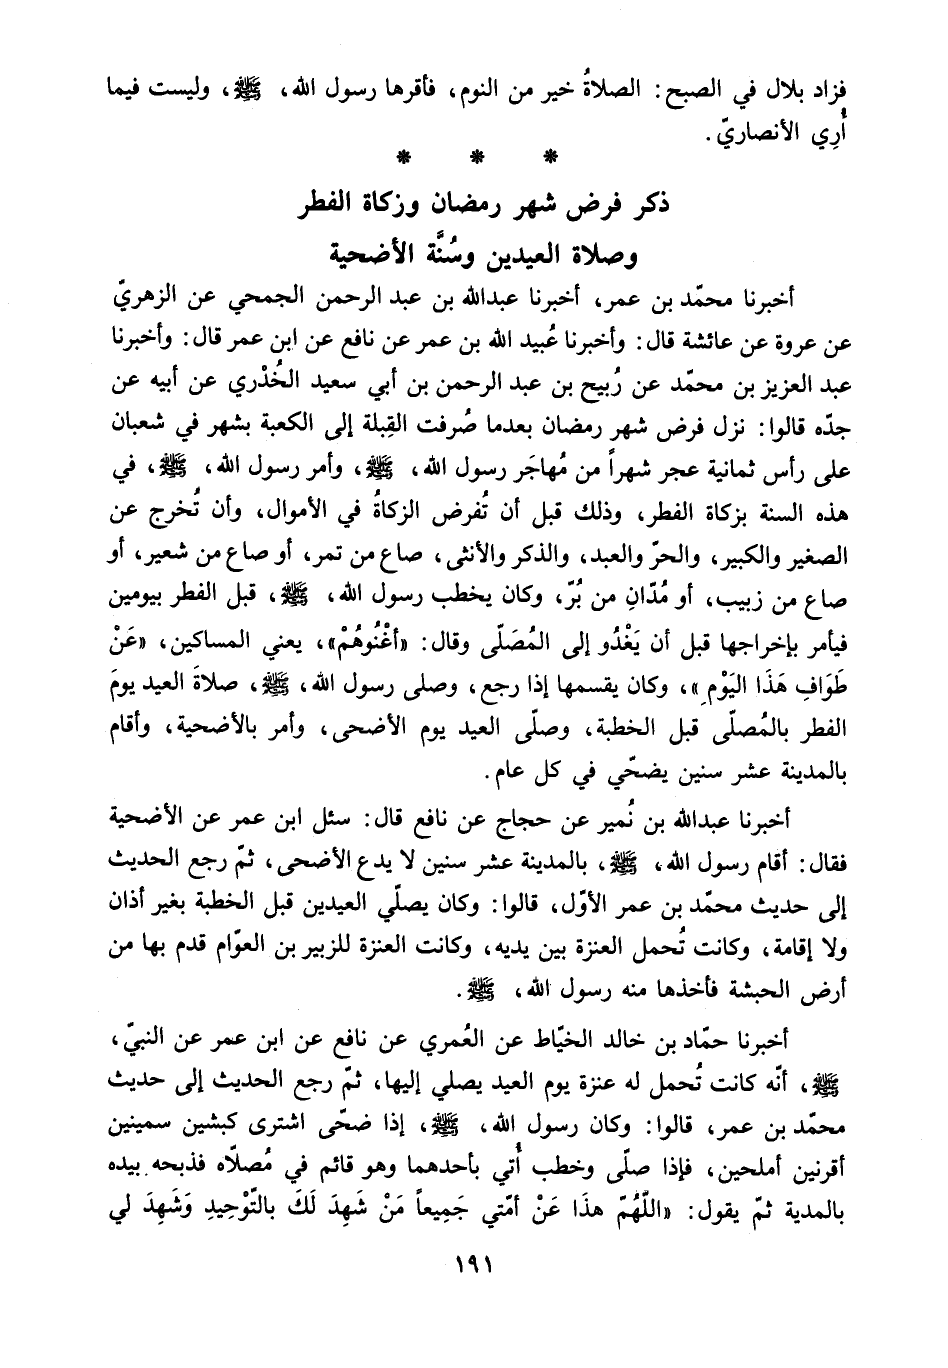 فزاد بلال في الصبح: الصلاةُ خير من النوم، فأقرها رسول الله، ﷺ، وليست فيما
أُرِي الأنصاريّ.
* * *
ذكر فرض شهر رمضان وزكاة الفطر
وصلاة العيدين وسُنَّة الأضحية
أخبرنا محمّد بن عمر، أخبرنا عبدالله بن عبد الرحمن الجمحي عن الزهريّ
عن عروة عن عائشة قال: وأخبرنا عُبيد الله بن عمر عن نافع عن ابن عمر قال: وأخبرنا
عبد العزيز بن محمّد عن رُبيح بن عبد الرحمن بن أبي سعيد الخُدْري عن أبيه عن
جدّه قالوا: نزل فرض شهر رمضان بعدما صُرفت القِبلة إلى الكعبة بشهر في شعبان
على رأس ثمانية عجر شهراً من مُهاجَر رسول الله، ﷺ، وأمر رسول الله، ﷺ، في
هذه السنة بزكاة الفطر، وذلك قبل أن تُفرض الزكاةُ في الأموال، وأن تُخرج عن
الصغير والكبير، والحرّ والعبد، والذكر والأنثى، صاع من تمر، أو صاع من شعير، أو
صاع من زبيب، أو مُدّانِ من بُرّ، وكان يخطب رسول الله، ﷺ، قبل الفطر بيومين
فيأمر بإخراجها قبل أن يَغْدُو إلى المُصَلّى وقال: «أغْنُوهُمْ»، يعني المساكين، «عَنْ
طَوَافِ هَذَا اليَوْمِ»، وكان يقسمها إذا رجع، وصلى رسول الله، ﷺ، صلاةَ العيد يومَ
الفطر بالمُصلّى قبل الخطبة، وصلّى العيد يوم الأضحى، وأمر بالأضحية، وأقام
بالمدينة عشر سنين يضحّي في كل عام.
أخبرنا عبدالله بن نُمير عن حجاج عن نافع قال: سئل ابن عمر عن الأضحية
فقال: أقام رسول الله، ﷺ، بالمدينة عشر سنين لا يدع الأضحى، ثمّ رجع الحديث
إلى حديث محمّد بن عمر الأوّل، قالوا: وكان يصلّي العيدين قبل الخطبة بغير أذان
ولا إقامة، وكانت تُحمل العنزة بين يديه، وكانت العنزة للزبير بن العوّام قدم بها من
أرض الحبشة فأخذها منه رسول الله، ﷺ.
أخبرنا حمّاد بن خالد الخيّاط عن العُمري عن نافع عن ابن عمر عن النبيّ،
ﷺ، أنّه كانت تُحمل له عنزة يوم العيد يصلي إليها، ثمّ رجع الحديث إلى حديث
محمّد بن عمر، قالوا: وكان رسول الله، ﷺ، إذا ضحّى اشترى كبشين سمينين
أقرنين أملحين، فإذا صلّى وخطب أُتي بأحدهما وهو قائم في مُصلّاه فذبحه بيده
بالمدية ثمّ يقول: «اللّهُمّ هذَا عَنْ أمّتي جَمِيعاً مَنْ شَهِدَ لَكَ بالتّوْحِيدِ وَشَهِدَ لي
١٩١